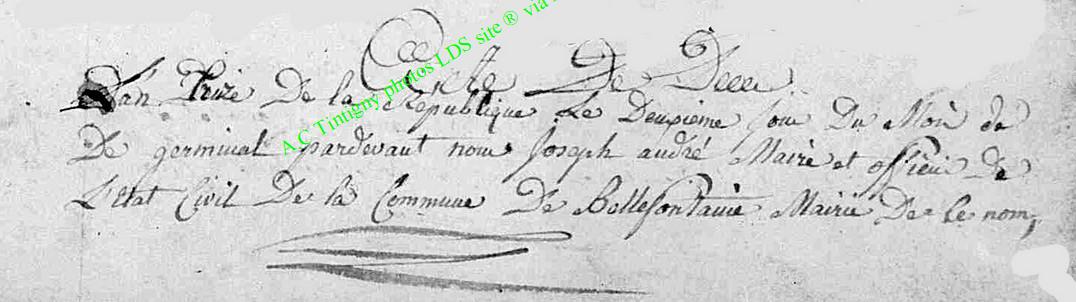 Acte De Deces
L'an treize De la Republique Le Deuxieme Jour Du Mois de
De germinal pardevant nous Joseph andré Maire et officier De
L'etat Civil De la Commune De Bellefontaine Mairie De ce nom,
A.C Tintigny photos LDS site ® via